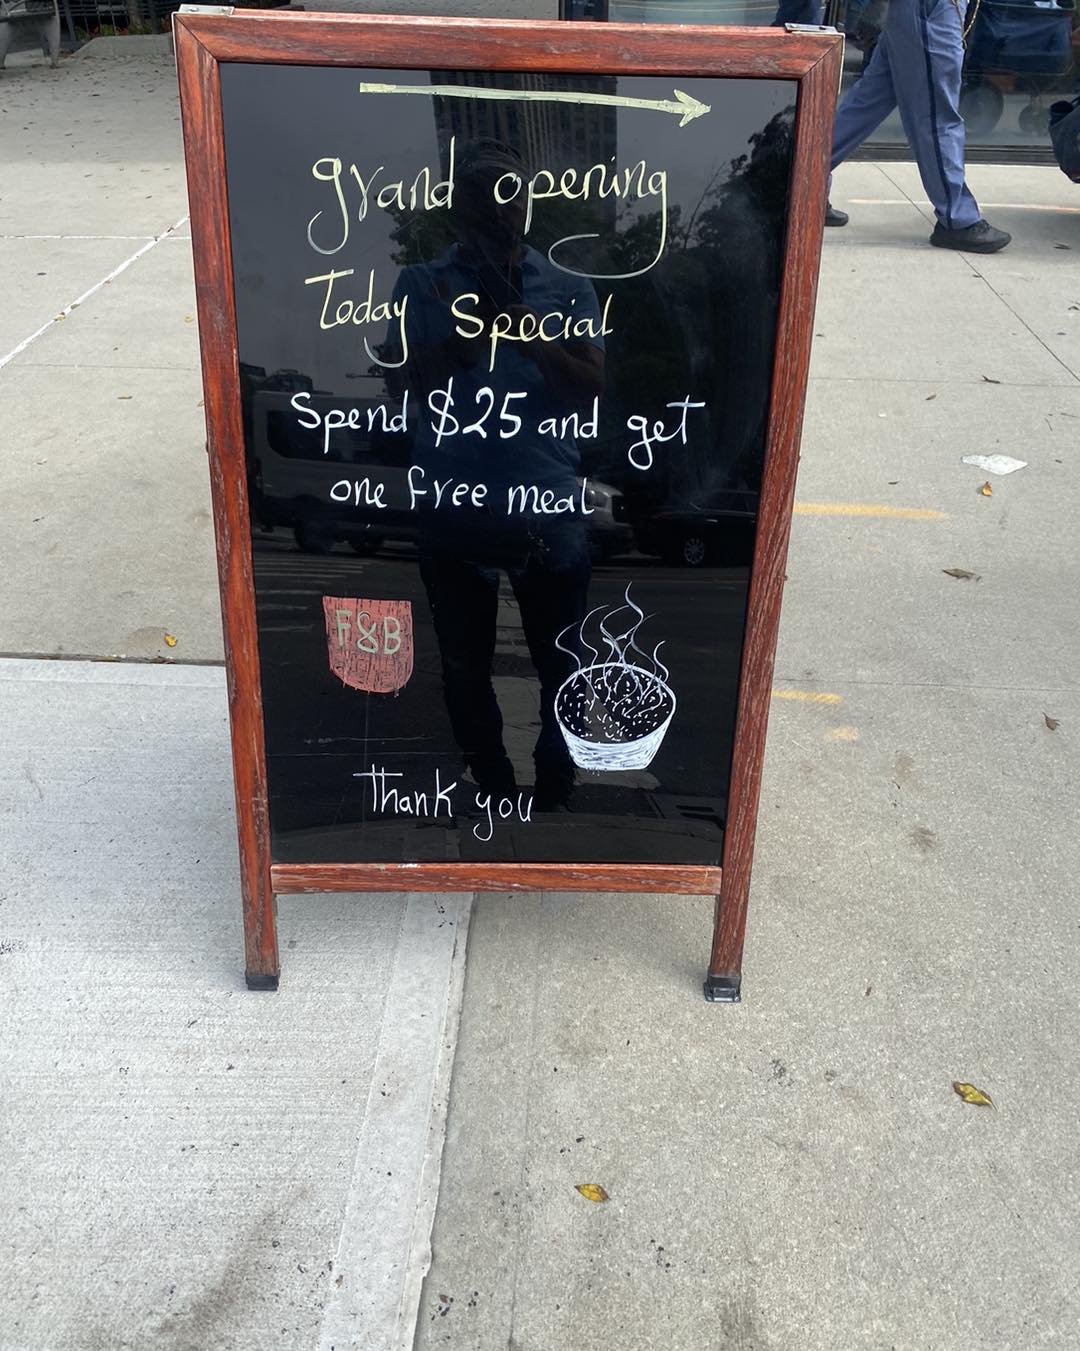 grand opening
Today Special
Spend $25 and get
one free meal
F&B
Thank you